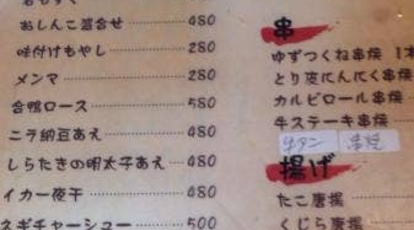 おしんこ盛合せ 480
味付けもやし 280
メンマ 280
合鴨ロース 580
ニラ納豆あえ 480
しらたきの明太子あえ 480
イカ一夜干 480
ネギチャーシュー 500
串
ゆずつくね串焼 1本
とり皮にんにく串焼
カルビロール串焼
牛ステーキ串焼
牛タン 串焼
揚げ
たこ唐揚
くじら唐揚